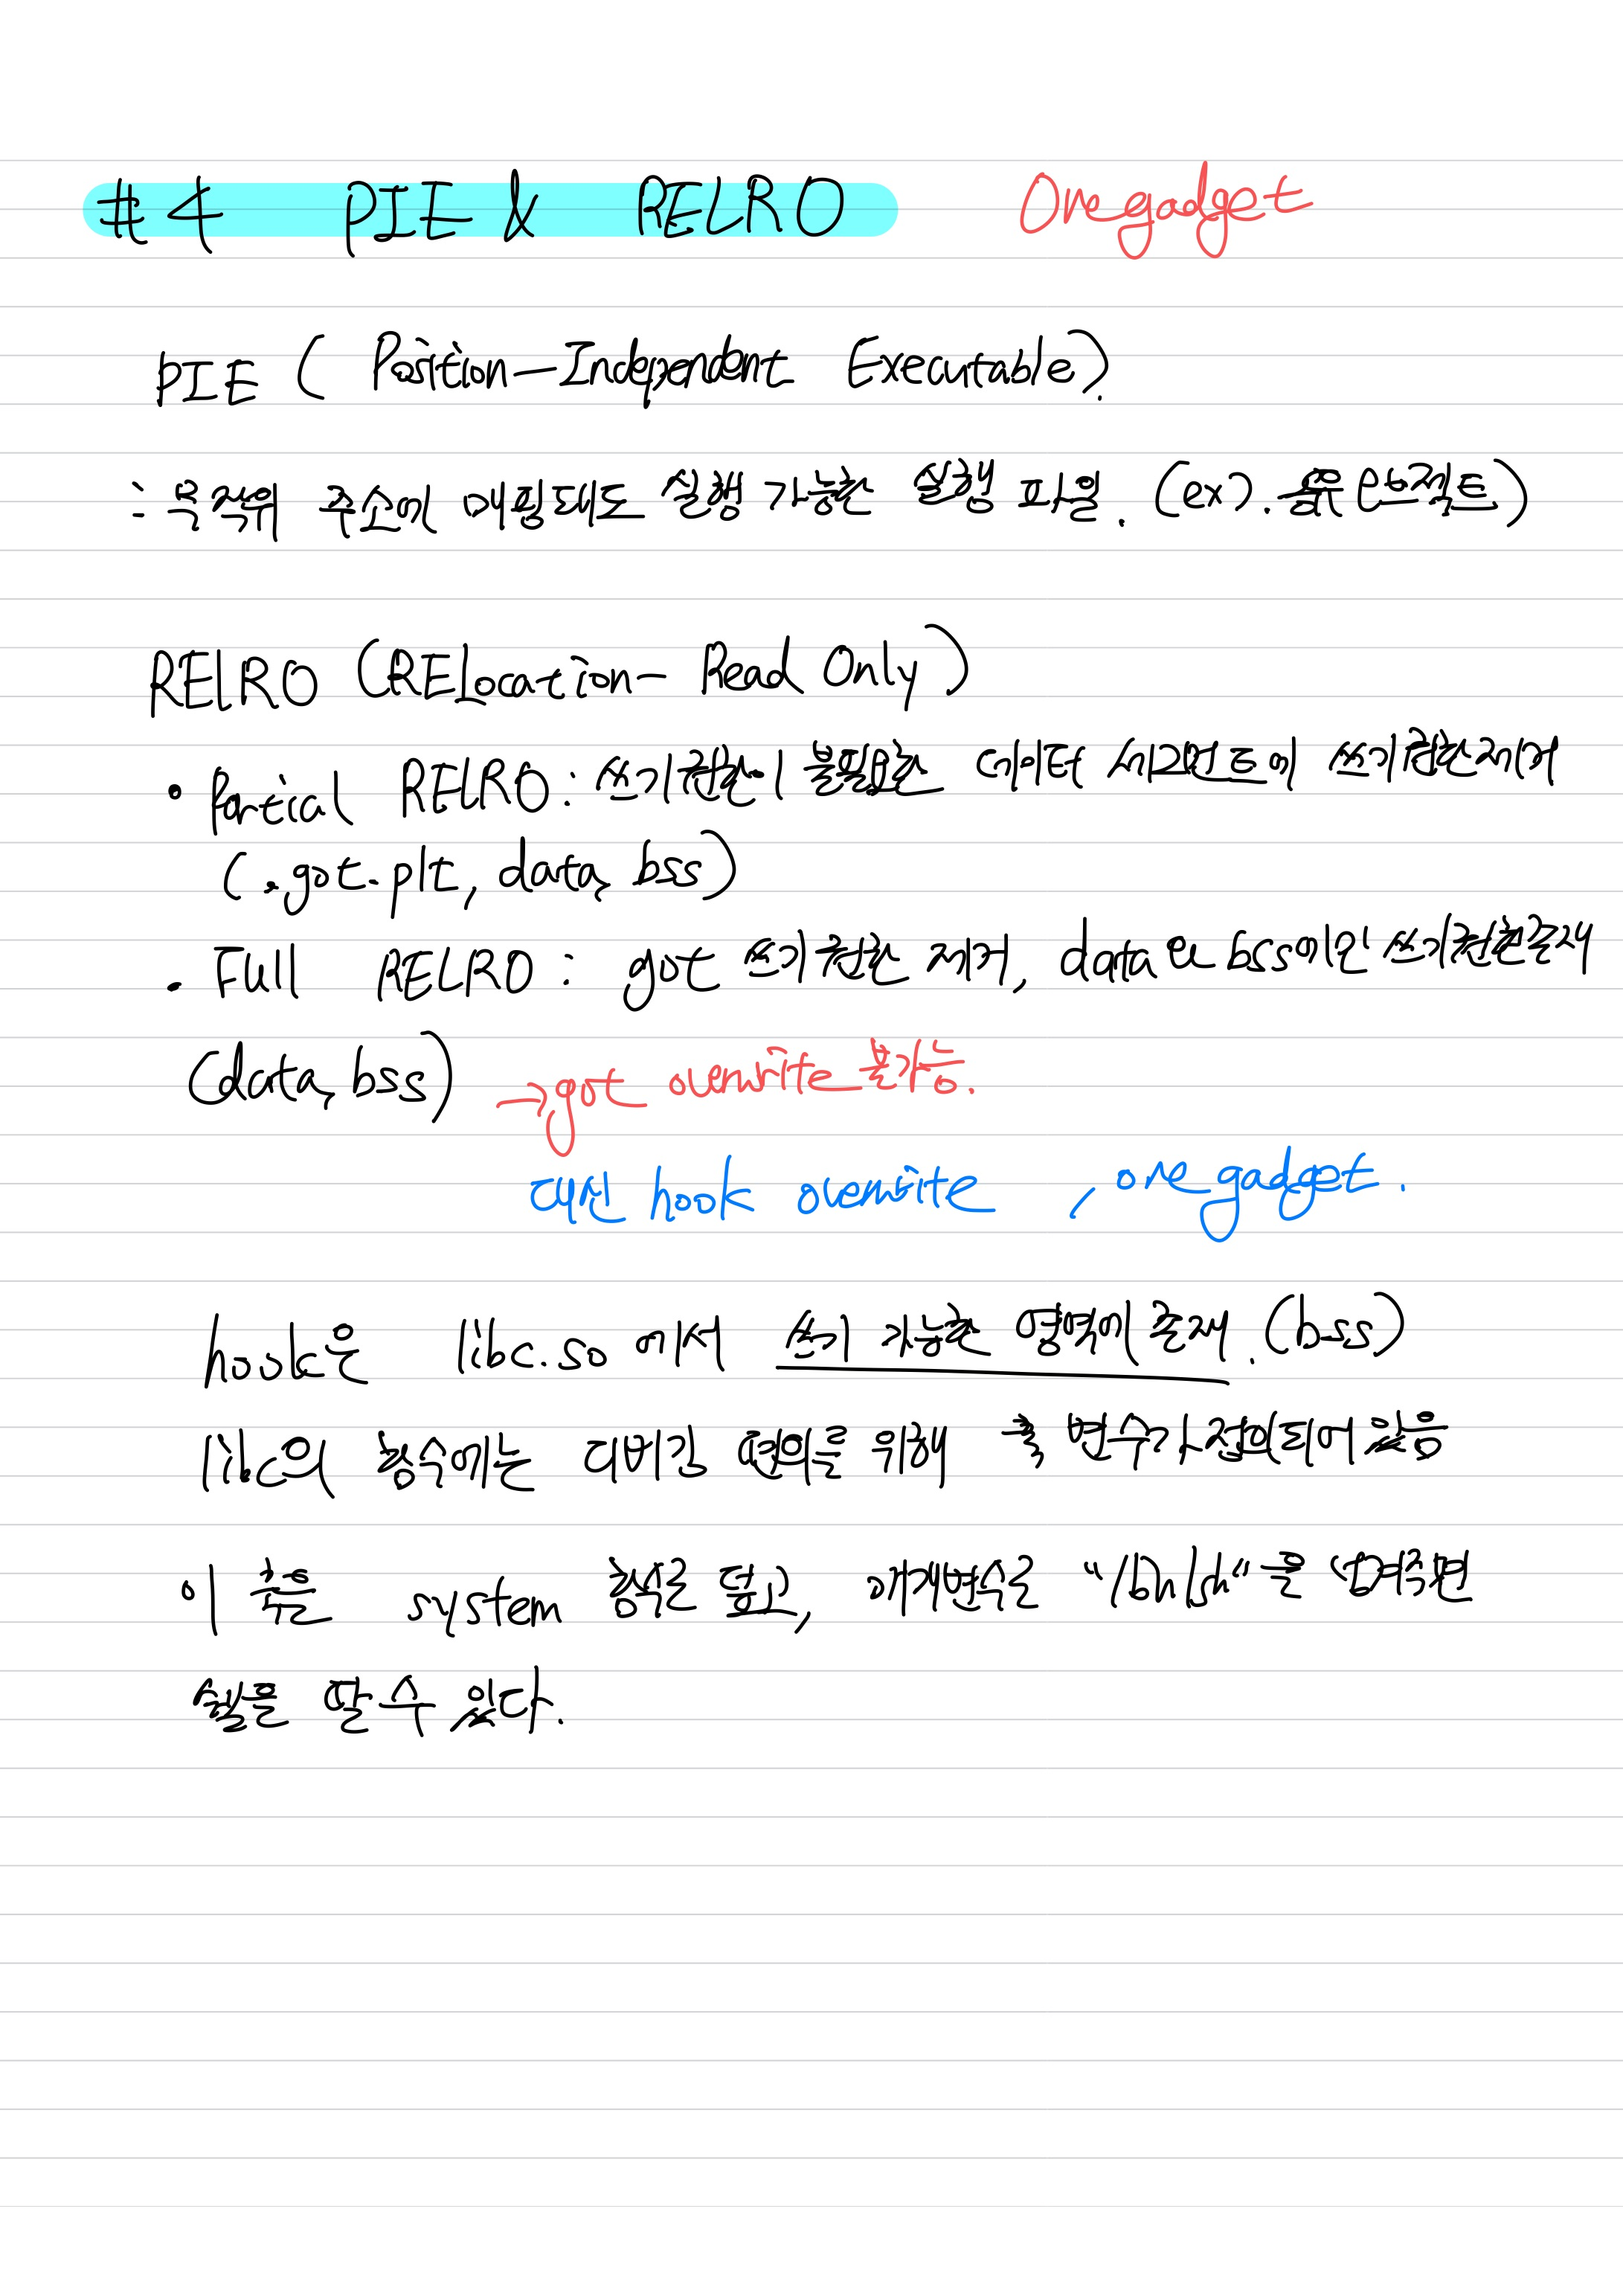 #4 PIE & RELRO One gadget
PIE ( Position-Independent Executable).
: 목적에 주소에 매핑돼도 실행 가능한 실행 파일. (ex). 공유 오브젝트)
RELRO (RELocation- Read Only)
• Partical RELRO: 쓰기권한이 불필요한 데이터 세그먼트에 쓰기권한 제거
(.got.plt, data, bss)
• Full RELRO: got 쓰기 권한 제거, data와 bss에만 쓰기권한 존재
(data, bss) →got overwrite 불가능.
대신 hook overwrite , one gadget.
hook은 libc.so 에서 쓰기 가능한 영역에 존재. (bss)
libc의 함수에는 디버깅 편의를 위해 훅 변수가 정의되어 있음
이 훅을 system 함수로 덮고, 매개변수로 "/bin/sh" 을 입력하면
쉘을 딸 수 있다.